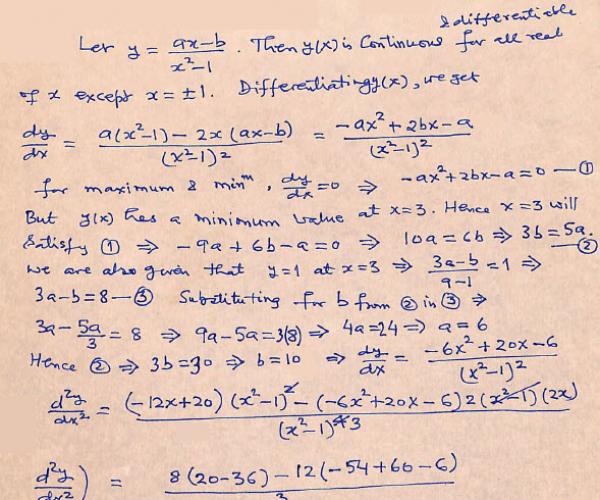 & differentiable
Let y = (ax-b)/(x²-1) . Then y(x) is Continuous for all real
of x except x = ±1. Differentiating y(x), we get
dy/dx = (a(x²-1) - 2x(ax-b))/(x²-1)² = (-ax²+2bx-a)/(x²-1)²
for maximum & minᵐ, dy/dx = 0 ⇒ -ax²+2bx-a=0 — ①
But y(x) has a minimum value at x=3. Hence x=3 will
Satisfy ① ⇒ -9a+6b-a=0 ⇒ 10a=6b ⇒ 3b=5a. — ②
we are also given that y=1 at x=3 ⇒ (3a-b)/(9-1) = 1 ⇒
3a-b=8 — ③ Substituting for b from ② in ③ ⇒
3a - 5a/3 = 8 ⇒ 9a-5a=3(8) ⇒ 4a=24 ⇒ a=6
Hence ② ⇒ 3b=30 ⇒ b=10 ⇒ dy/dx = (-6x²+20x-6)/(x²-1)²
d²y/dx² = ((-12x+20)(x²-1)² - (-6x²+20x-6)2(x²-1)(2x))/(x²-1)⁴ 3
d²y/dx²) = 8(20-36)-12(-54+60-6)